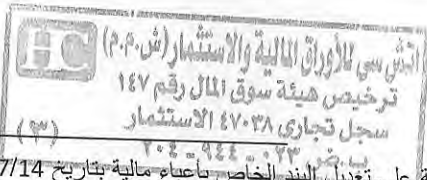 HC
اتش سي للأوراق المالية والاستثمار (ش.م.م)
ترخيص هيئة سوق المال رقم ١٤٧
سجل تجاري ٤٧٠٣٨ الاستثمار
ب.ض ٠٢٣ - ٩٤٤ - ٢٠٤ (٣)
على تعديل البند الخاص بأعباء مالية بتاريخ 7/14